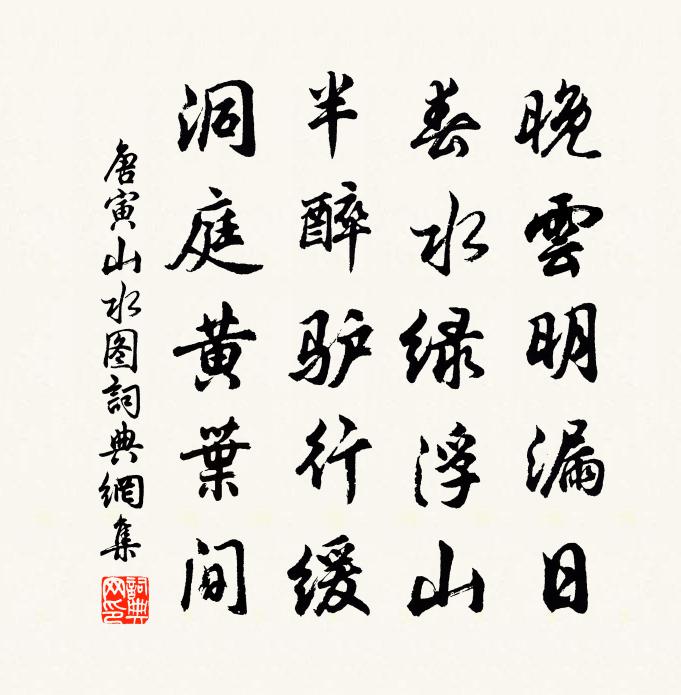 晚雲明漏日
春水绿浮山
半醉驴行缓
洞庭黄葉间
唐寅山水图詞典網集
詞典網印